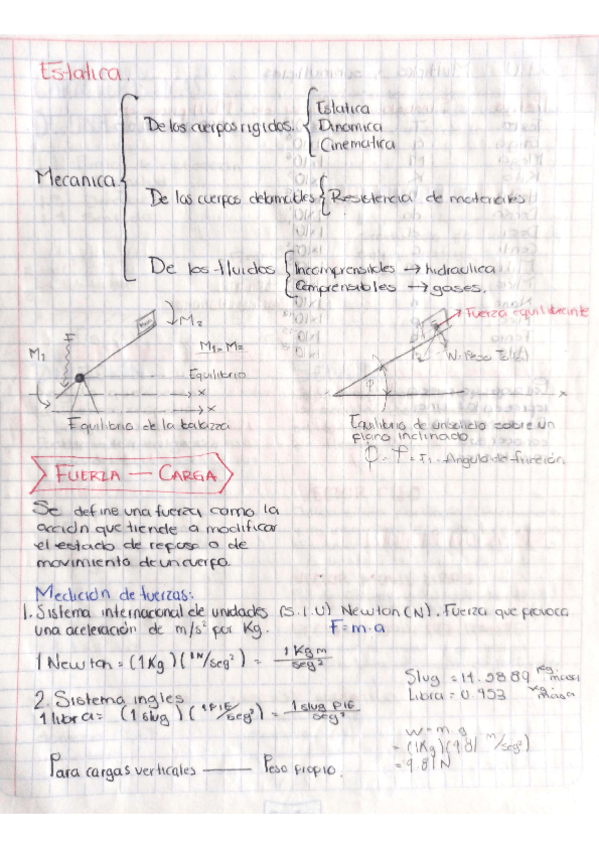 Estatica.
De los cuerpos rigidos.
Estatica
Dinamica
Cinematica
Mecanica
De los cuerpos deformables
Resistencia de materiales
De los fluidos
Incomprensibles → hidraulica
Comprensibles → gases.
M₂
M₁
M₁=M₂
Equilibrio
x
x
Equilibrio de la balazza
Fuerza equilibrante
W: Peso
φ
x
Equilibrio de un solido sobre un
plano inclinado.
Angulo de fricción
FUERZA — CARGA
Se define una fuerza como la
acción que tiende a modificar
el estado de reposo o de
movimiento de un cuerpo.
Medición de fuerzas:
1. Sistema internacional de unidades (S.I.U) Newton (N). Fuerza que provoca
una aceleración de m/s² por Kg. F=m·a
1 Newton = (1Kg)(1M/seg²) = 1 Kg m / seg²
Slug = 14.5889 Kg. masa
Libra = 0.453 Kg masa
2. Sistema ingles
1 libra = (1 slug)(1 PIE/seg²) = 1 slug PIE / seg²
W = m·g
= (1Kg)(9.81 m/seg²)
= 9.81 N
Para cargas verticales —— Peso propio.